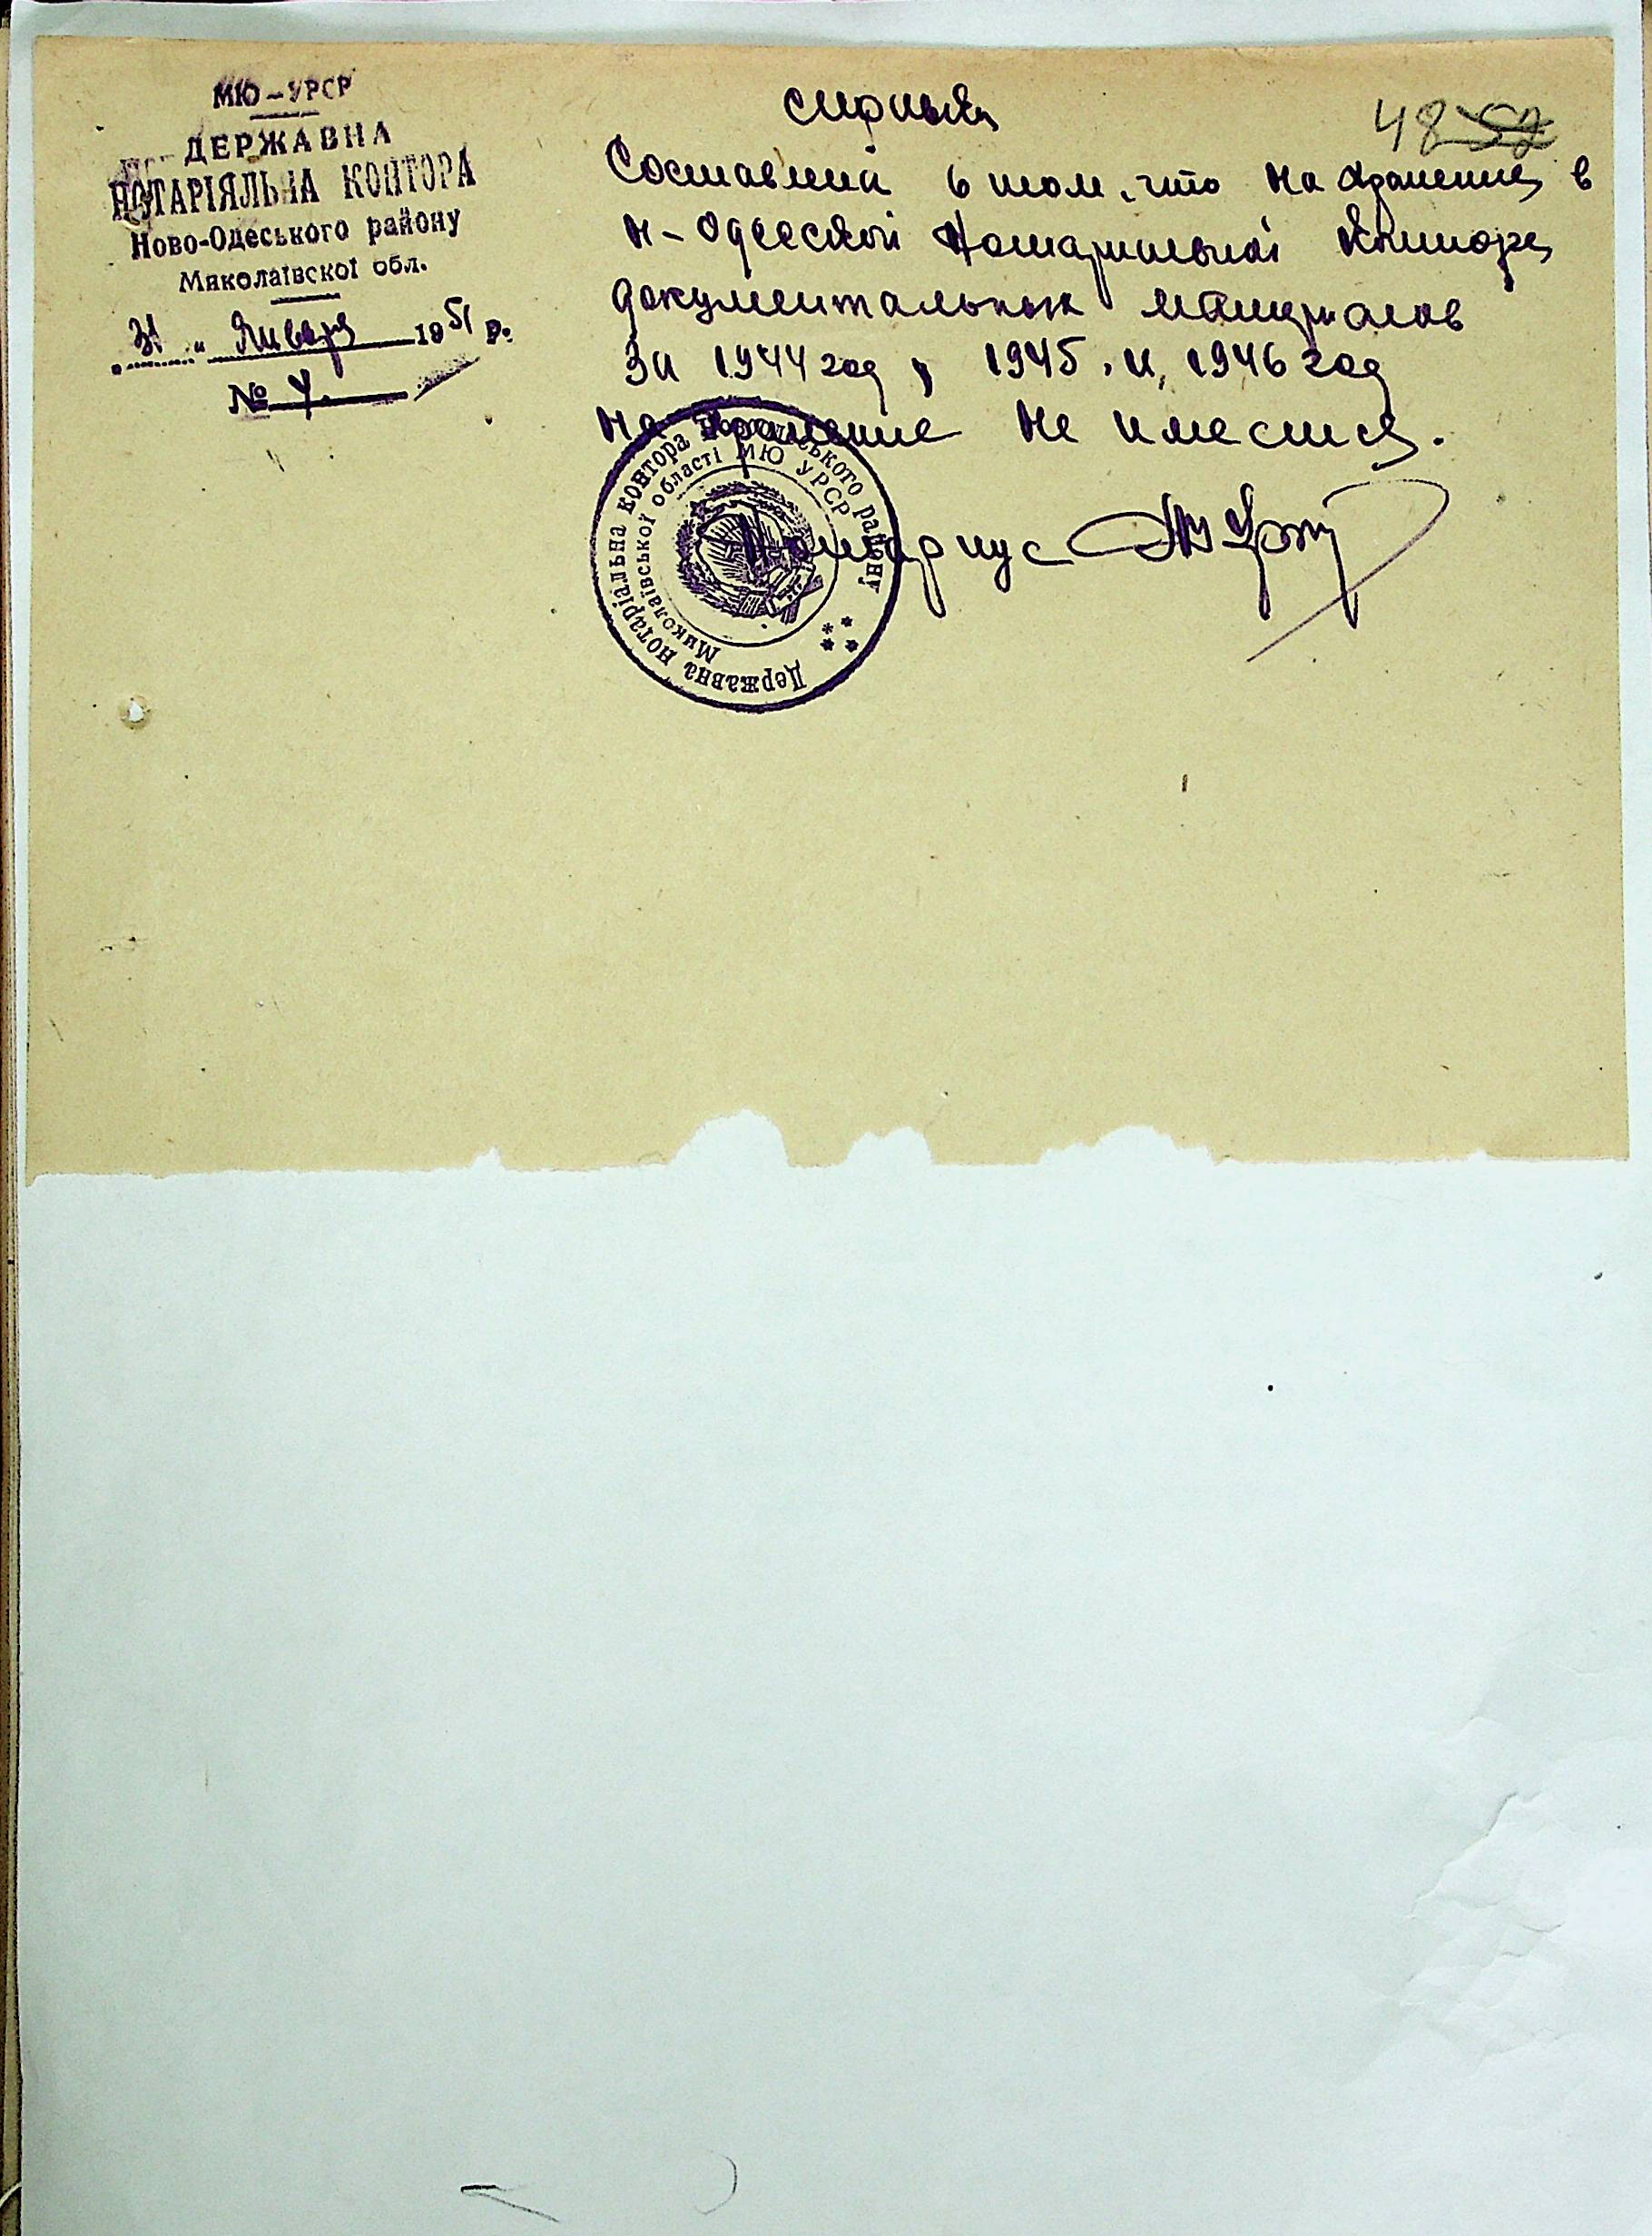 МЮ – УРСР
ДЕРЖАВНА
НОТАРІЯЛЬНА КОНТОРА
Ново-Одеського району
Миколаївскої обл.
31 " Января 1951 р.
№ 4.
48 52
Составлена в том, что на хранении в
Н-Одесской Нотариальной Конторе
документальных материалов
за 1944 год, 1945. и, 1946 год
на хранение не имеется.
Нотариус
Державна нотаріальна контора районy
Миколаївської області МЮ УРСР